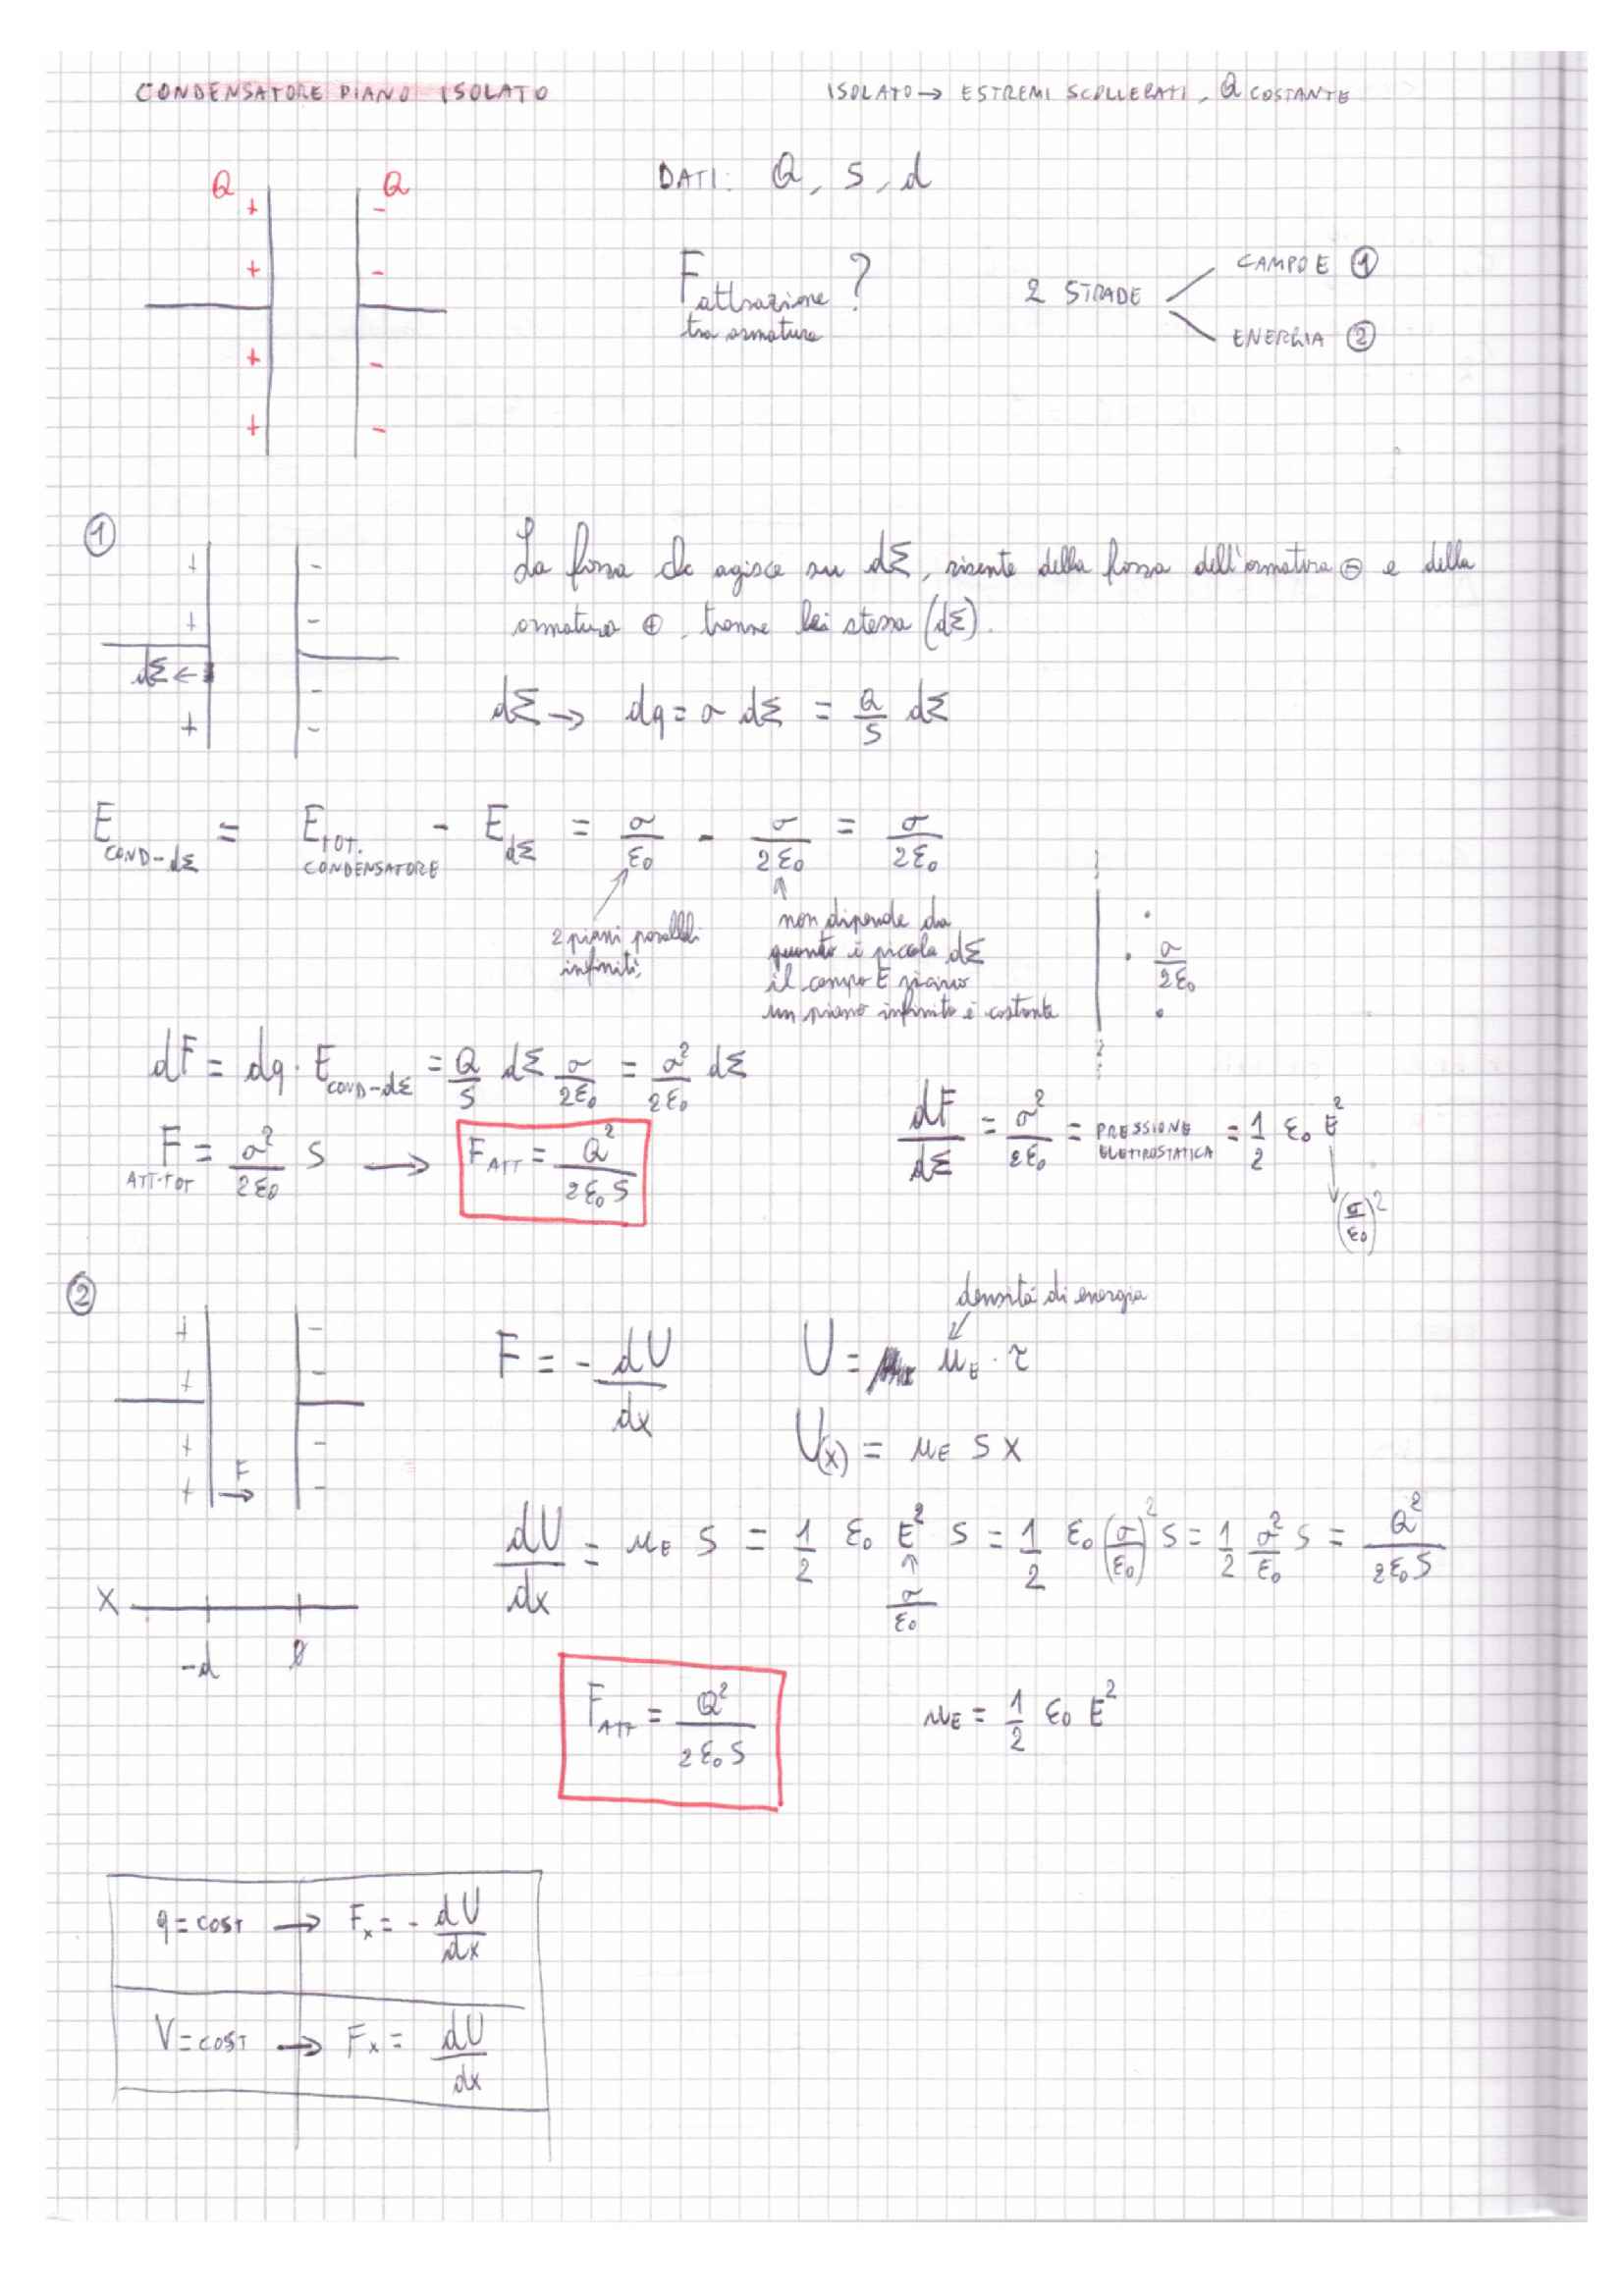 CONDENSATORE PIANO ISOLATO
ISOLATO → ESTREMI SCOLLEGATI, Q COSTANTE
Q Q
+ -
+ -
+ -
+ -
DATI: Q, S, d
F attrazione tra armature ?
2 STRADE
CAMPO E ①
ENERGIA ②
①
+ -
+ -
dΣ ←
-
+ -
La forza che agisce su dΣ, risente della forza dell'armatura ⊖ e della
armatura ⊕, tranne lei stessa (dΣ).
dΣ → dq = σ dΣ = Q/S dΣ
E COND-dΣ = E TOT. CONDENSATORE - E dΣ = σ/ε₀ - σ/2ε₀ = σ/2ε₀
2 piani paralleli
infiniti,
non dipende da
quanto è piccola dΣ
il campo E vicino
un piano infinito è costante
σ/2ε₀
dF = dq · E COND-dΣ = Q/S dΣ σ/2ε₀ = σ²/2ε₀ dΣ
F ATT-TOT = σ²/2ε₀ S → F ATT = Q²/2ε₀S
dF/dΣ = σ²/2ε₀ = PRESSIONE ELETTROSTATICA = 1/2 ε₀ E²
(σ/ε₀)²
②
+ -
+ -
+ -
+ -
F →
F = - dU/dx
densità di energia
U = u_E · τ
U(x) = u_E S x
dU/dx = u_E S = 1/2 ε₀ E² S = 1/2 ε₀ (σ/ε₀)² S = 1/2 σ²/ε₀ S = Q²/2ε₀S
σ/ε₀
X
-d 0
F ATT = Q²/2ε₀S
u_E = 1/2 ε₀ E²
q = COST → Fₓ = - dU/dx
V = COST → Fₓ = dU/dx